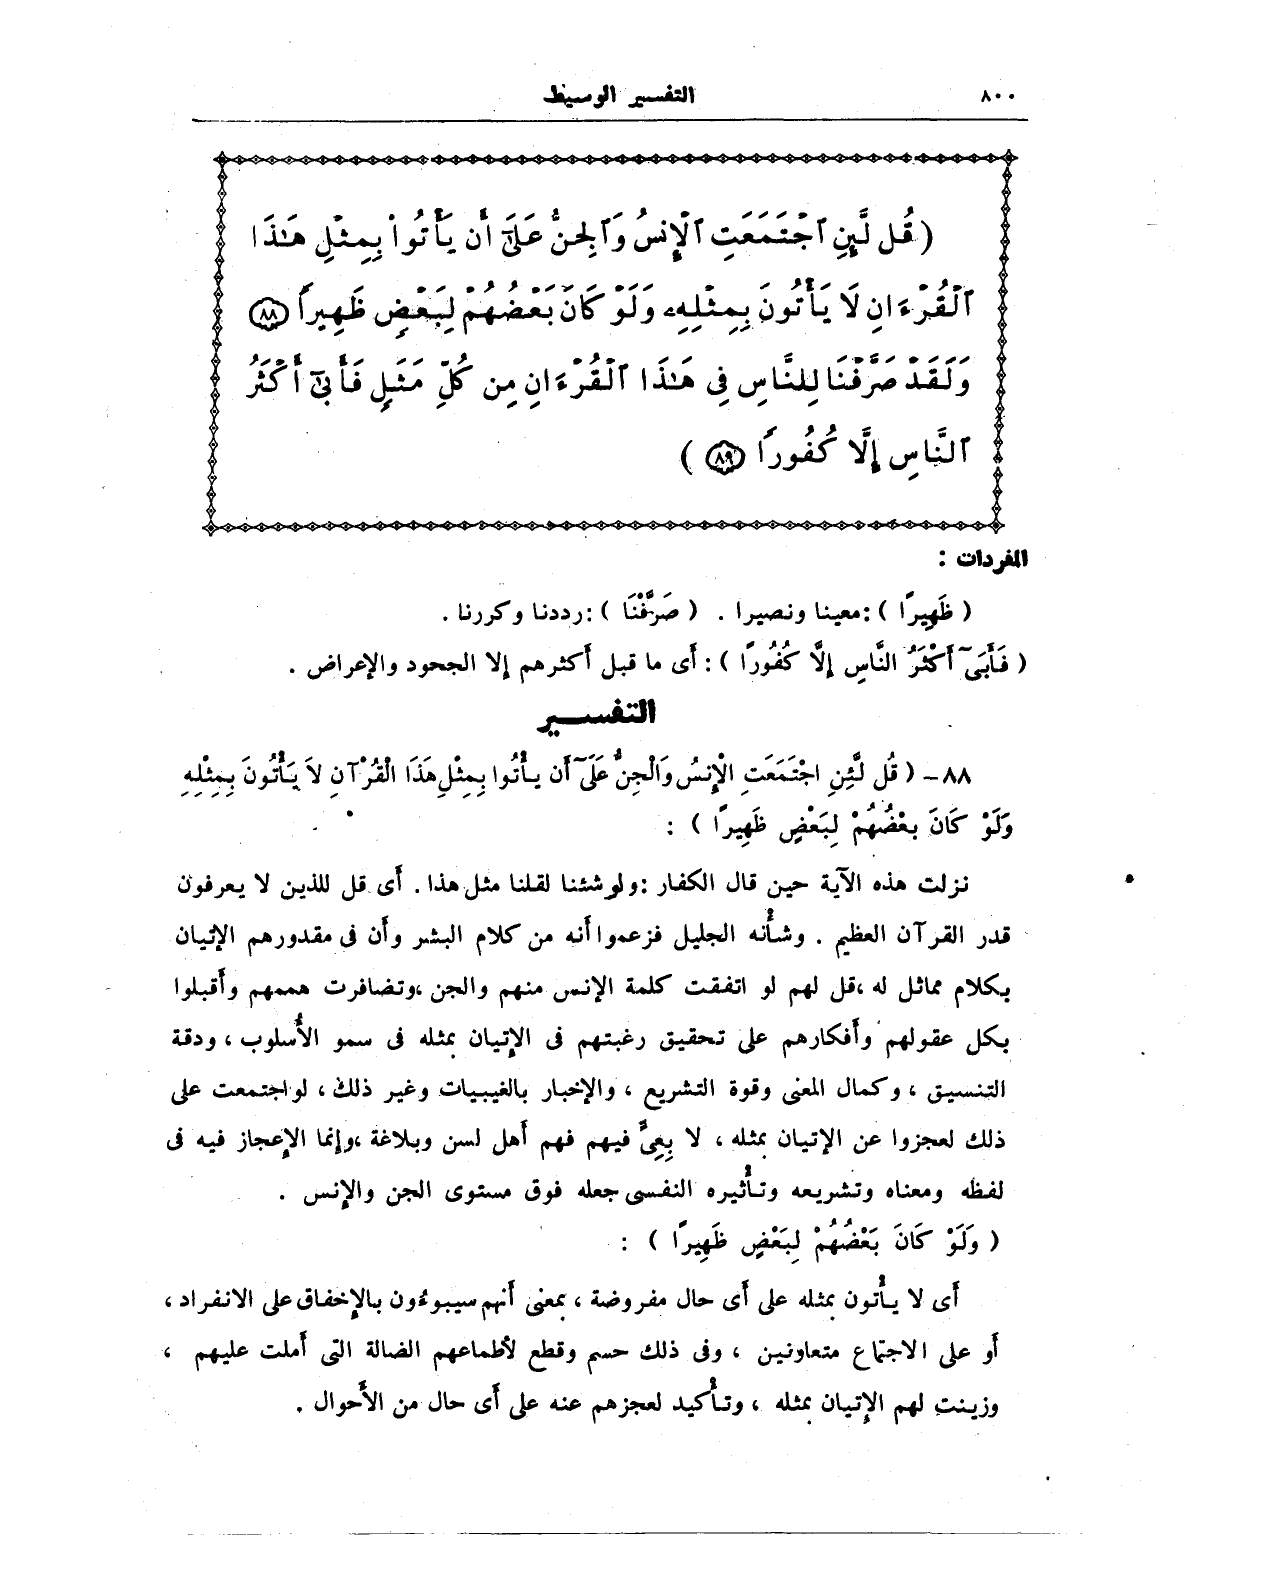 ٨٠٠ التفسير الوسيط
( قُل لَّئِنِ ٱجْتَمَعَتِ ٱلْإِنسُ وَٱلْجِنُّ عَلَىٰٓ أَن يَأْتُوا۟ بِمِثْلِ هَـٰذَا
ٱلْقُرْءَانِ لَا يَأْتُونَ بِمِثْلِهِۦ وَلَوْ كَانَ بَعْضُهُمْ لِبَعْضٍ ظَهِيرًا ٨٨
وَلَقَدْ صَرَّفْنَا لِلنَّاسِ فِى هَـٰذَا ٱلْقُرْءَانِ مِن كُلِّ مَثَلٍ فَأَبَىٰٓ أَكْثَرُ
ٱلنَّاسِ إِلَّا كُفُورًا ٨٩ )
المفردات :
( ظَهِيرًا ) : معينا ونصيرا . ( صَرَّفْنَا ) : رددنا وكررنا .
( فَأَبَىٓ أَكْثَرُ النَّاسِ إِلَّا كُفُورًا ) : أى ما قبل أكثرهم إلا الجحود والإعراض .
التفسـير
٨٨ – ( قُل لَّئِنِ اجْتَمَعَتِ الْإِنسُ وَالْجِنُّ عَلَىٓ أَن يأْتُوا بِمِثْلِ هَذَا الْقُرْآنِ لاَ يَأْتُونَ بِمِثْلِهِ
وَلَوْ كَانَ بعْضُهُمْ لِبَعْضٍ ظَهِيرًا ) :
نزلت هذه الآية حين قال الكفار : ولو شئنا لقلنا مثل هذا . أى قل للذين لا يعرفون
قدر القرآن العظيم . وشأنه الجليل فزعموا أنه من كلام البشر وأن فى مقدورهم الإتيان
بكلام مماثل له ، قل لهم لو اتفقت كلمة الإنس منهم والجن ، وتضافرت هممهم وأقبلوا
بكل عقولهم وأفكارهم على تحقيق رغبتهم فى الإتيان بمثله فى سمو الأُسلوب ، ودقة
التنسيق ، وكمال المعنى وقوة التشريع ، والإخبار بالغيبيات وغير ذلك ، لو اجتمعت على
ذلك لعجزوا عن الإتيان بمثله ، لا بِعِىٍّ فيهم فهم أهل لسن وبلاغة ، وإنما الإعجاز فيه فى
لفظه ومعناه وتشريعه وتأثيره النفسى جعله فوق مستوى الجن والإنس .
( وَلَوْ كَانَ بَعْضُهُمْ لِبَعْضٍ ظَهِيرًا ) :
أى لا يأْتون بمثله على أى حال مفروضة ، بمعنى أنهم سيبوءون بالإخفاق على الانفراد ،
أو على الاجتماع متعاونين ، وفى ذلك حسم وقطع لأطماعهم الضالة التى أملت عليهم ،
وزينت لهم الإتيان بمثله ، وتأكيد لعجزهم عنه على أى حال من الأحوال .